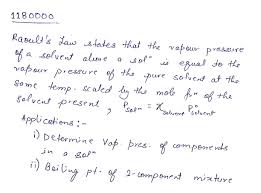 1180000
Raoult's Law states that the vapour pressure
of a solvent above a solⁿ is equal to the
vapour pressure of the pure solvent at the
same temp. scaled by the mole frⁿ of the
solvent present, P solⁿ = X solvent P° solvent
Applications :-
i) Determine Vap. pres. of components
in a solⁿ
ii) Boiling pt. of 2-component mixture